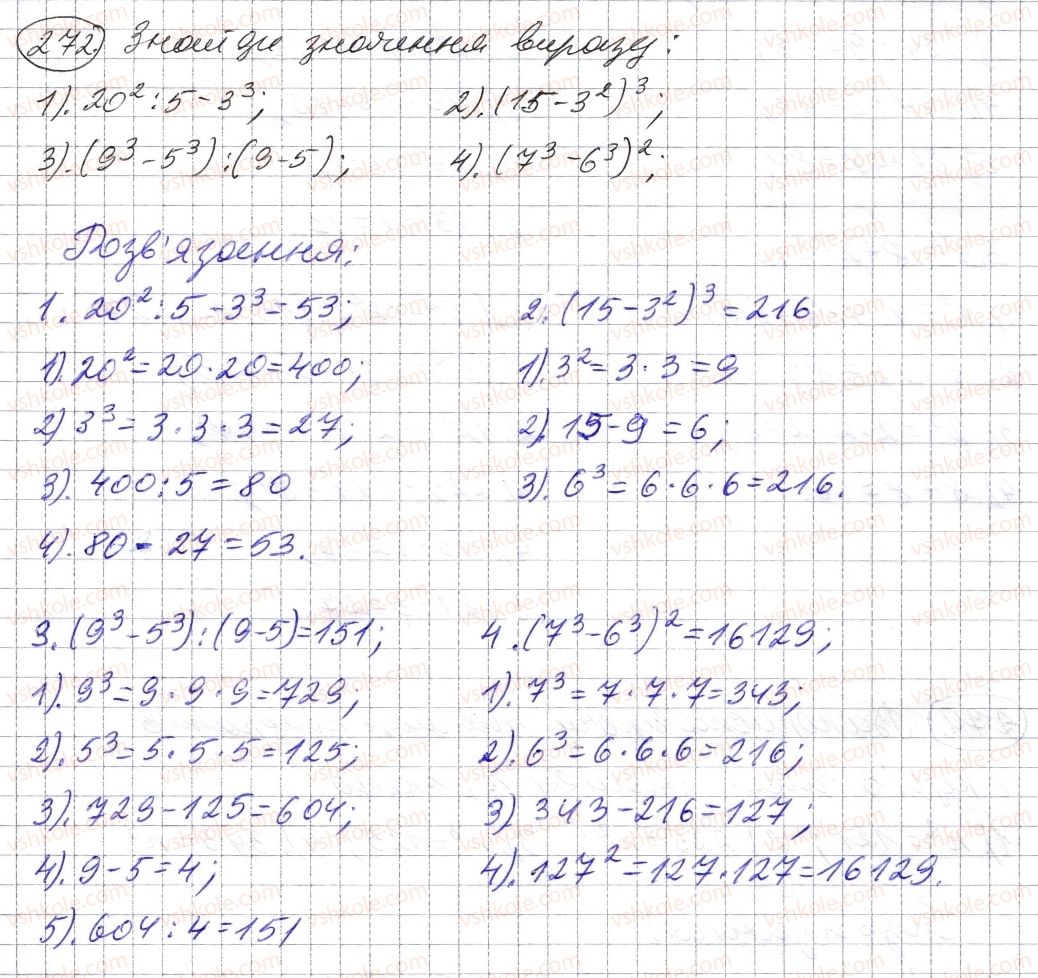 272. Знайди значення виразу:
1). 20² : 5 - 3³; 2). (15 - 3²)³;
3). (9³ - 5³) : (9 - 5); 4). (7³ - 6³)²;
Розв'язання:
1. 20² : 5 - 3³ = 53;
1). 20² = 20 · 20 = 400;
2) 3³ = 3 · 3 · 3 = 27;
3). 400 : 5 = 80
4). 80 - 27 = 53.
2. (15 - 3²)³ = 216
1). 3² = 3 · 3 = 9
2). 15 - 9 = 6;
3). 6³ = 6 · 6 · 6 = 216.
3. (9³ - 5³) : (9 - 5) = 151;
1). 9³ = 9 · 9 · 9 = 729;
2). 5³ = 5 · 5 · 5 = 125;
3). 729 - 125 = 604;
4). 9 - 5 = 4;
5). 604 : 4 = 151
4. (7³ - 6³)² = 16129;
1). 7³ = 7 · 7 · 7 = 343;
2). 6³ = 6 · 6 · 6 = 216;
3) 343 - 216 = 127;
4). 127² = 127 · 127 = 16129.
vshkole.com